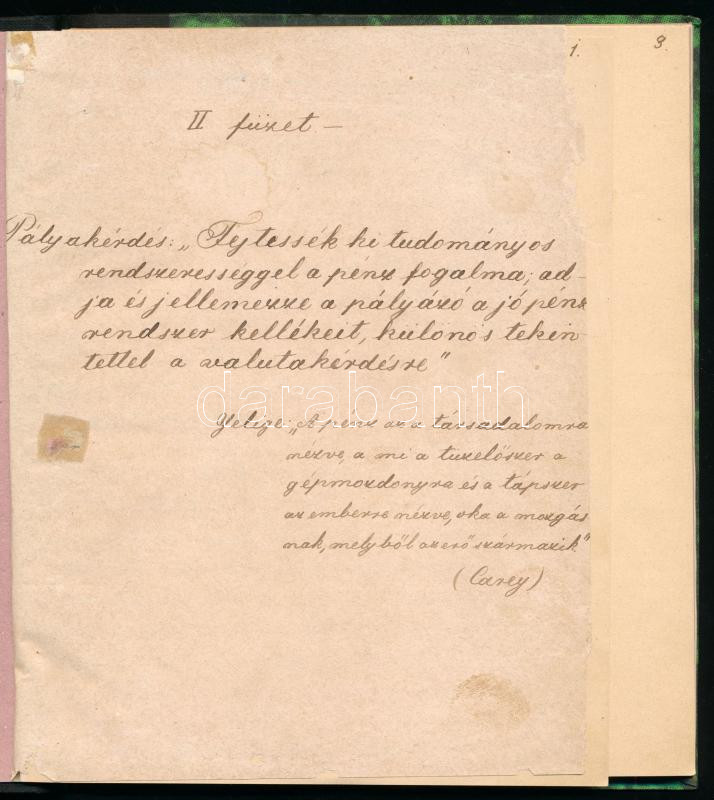 1.
3.
II füzet —
Pályakérdés: „Fejtessék ki tudományos
rendszerességgel a pénz fogalma; ad-
ja és jellemezze a pályázó a jó pénz
rendszer kellékeit, különös tekin-
tettel a valutakérdésre"
darabanth
Jelige: „A pénz az a társadalomra
nézve, a mi a tüzelőszer a
gépmozdonyra és a tápszer
az emberre nézve, oka a mozgás
nak, melyből az erő származik"
(Carey)